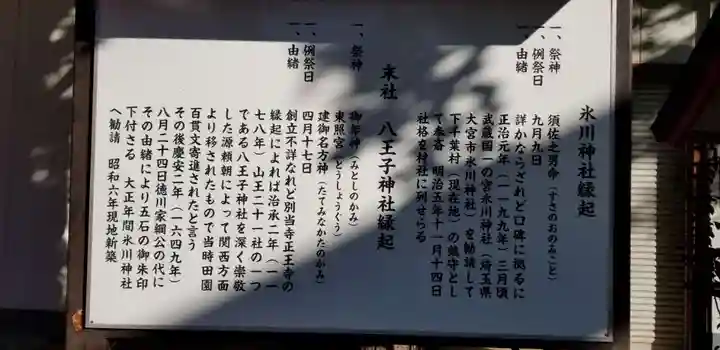 氷川神社縁起
一、祭神　須佐之男命（すさのおのみこと）
一、例祭日　九月九日
一、由緒　詳かならざれど口碑に拠るに
正治元年（一一九九年）三月頃
武蔵国一の宮氷川神社（埼玉県
大宮市氷川神社）を勧請して
下千葉村（現在地）の鎮守とし
て奉斎　明治五年十一月十四日
社格を村社に列せらる
末社　八王子神社縁起
一、祭神　御年神（みとしのかみ）
東照宮（とうしょうぐう）
建御名方神（たてみなかたのかみ）
一、例祭日　四月十七日
一、由緒　創立不詳なれど別当寺正王寺の
縁起によれば治承二年（一一
七八年）山王二十一社の一つ
である八王子神社を深く崇敬
した源頼朝によって関西方面
より移されたもので当時田園
百貫文寄進されたと言う
その後慶安二年（一六四九年）
八月二十四日徳川家綱公の代に
その由緒により五石の御朱印
下付さる　大正年間氷川神社
へ勧請　昭和六年現地新築